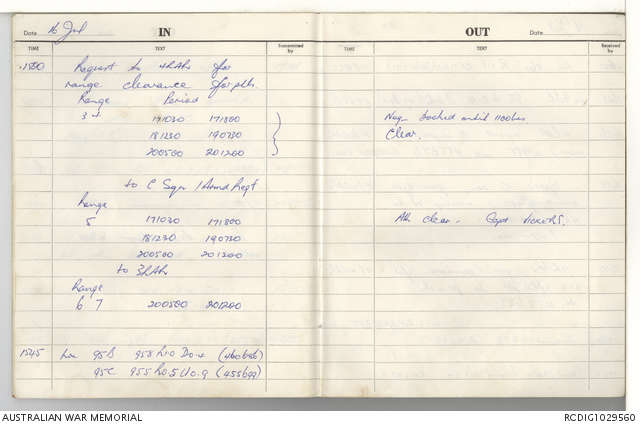 Date 16 Jul IN
TIME TEXT Transmitted by
1500 Request to 4RAR for
range clearance for ptks.
Range Period
3 4 171030 171800
181230 190730
200500 201200
to C Sqn 1 Armd Regt
Range
5 171030 171800
181230 190730
200500 201200
to 3RAR
Range
6 7 200500 201200
1545 Loc 95B (460656)
95C (455699)
OUT Date
TIME TEXT Received by
booked until 1100hrs
Clear.
All clear. Capt
AUSTRALIAN WAR MEMORIAL
RCDIG1029560